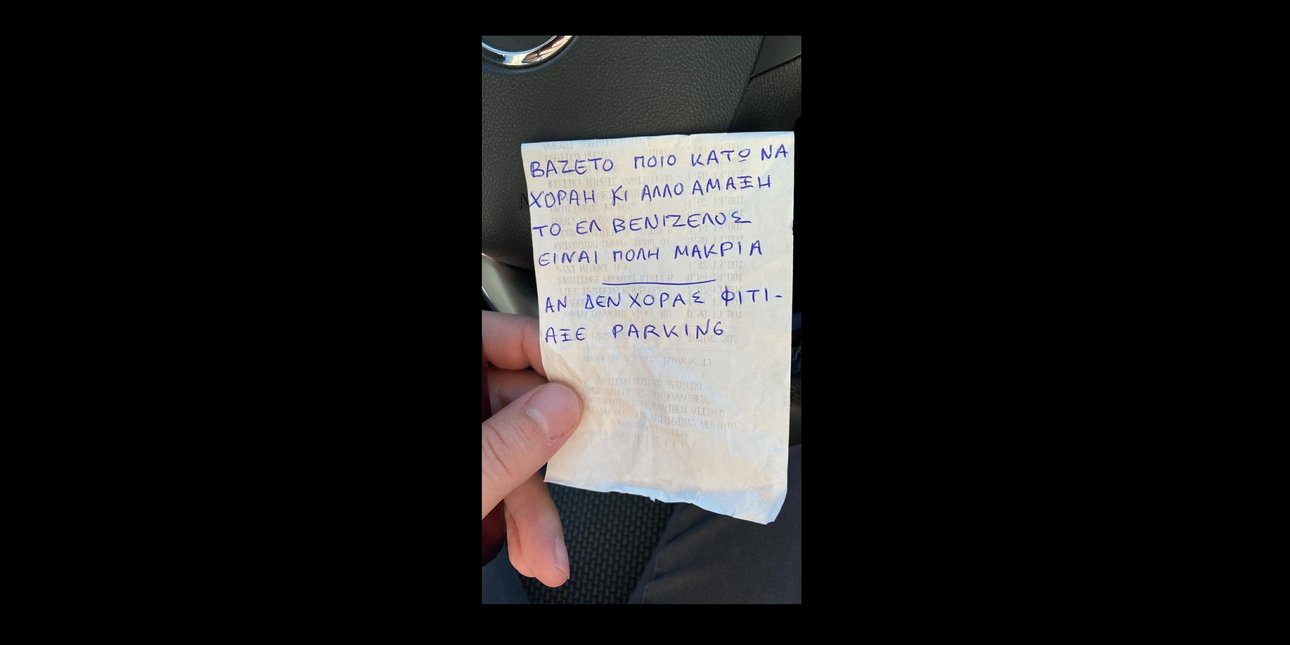 ΒΑΖΕΤΟ ΠΟΙΟ ΚΑΤΩ ΝΑ
ΧΟΡΑΗ ΚΙ ΑΛΛΟ ΑΜΑΞΗ
ΤΟ ΕΛ ΒΕΝΙΖΕΛΟΣ
ΕΙΝΑΙ ΠΟΛΗ ΜΑΚΡΙΑ
ΑΝ ΔΕΝ ΧΟΡΑΣ ΦΙΤΙ-
ΑΞΕ PARKING